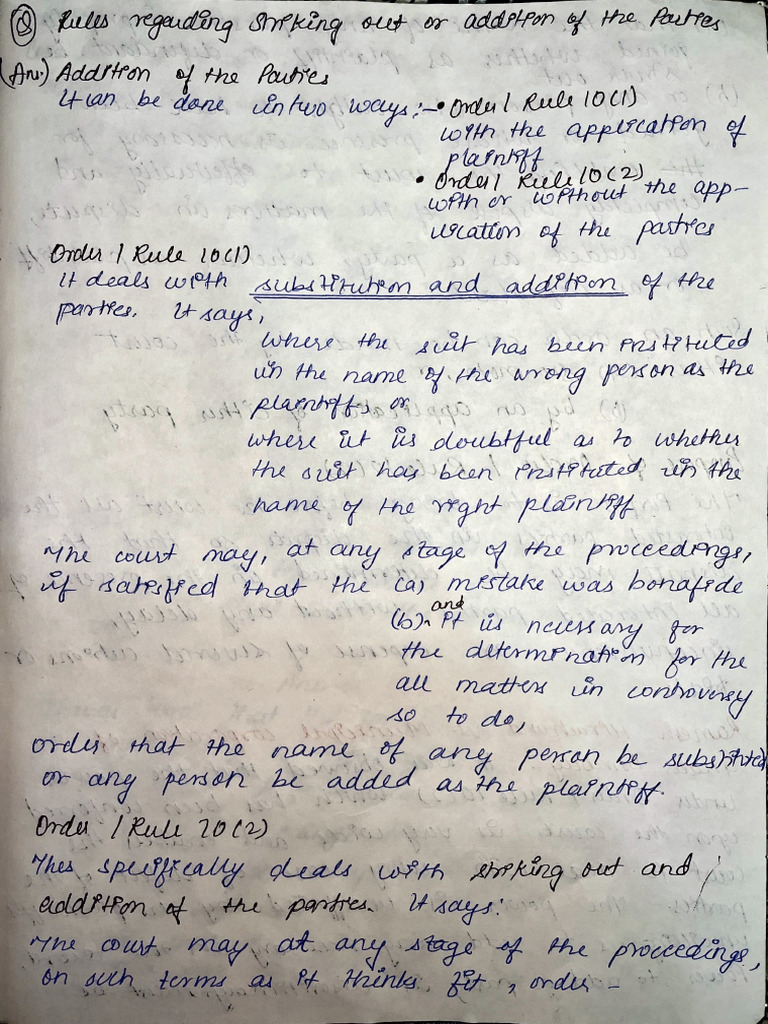 Q Rules regarding Striking out or addition of the Parties
(Ans.) Addition of the Parties
It can be done in two ways :- • Order 1 Rule 10(1)
with the application of
plaintiff
• Order 1 Rule 10(2)
with or without the app-
lication of the parties
Order 1 Rule 10(1)
It deals with substitution and addition of the
parties. It says,
where the suit has been instituted
in the name of the wrong person as the
plaintiff, or
where it is doubtful as to whether
the suit has been instituted in the
name of the right plaintiff
The court may, at any stage of the proceedings,
if satisfied that the (a) mistake was bonafide
and
(b) it is necessary for
the determination for the
all matters in controversy
so to do,
order that the name of any person be substituted
or any person be added as the plaintiff.
Order 1 Rule 10(2)
This specifically deals with striking out and
addition of the parties. It says:
The court may at any stage of the proceedings,
on such terms as it thinks fit, order -